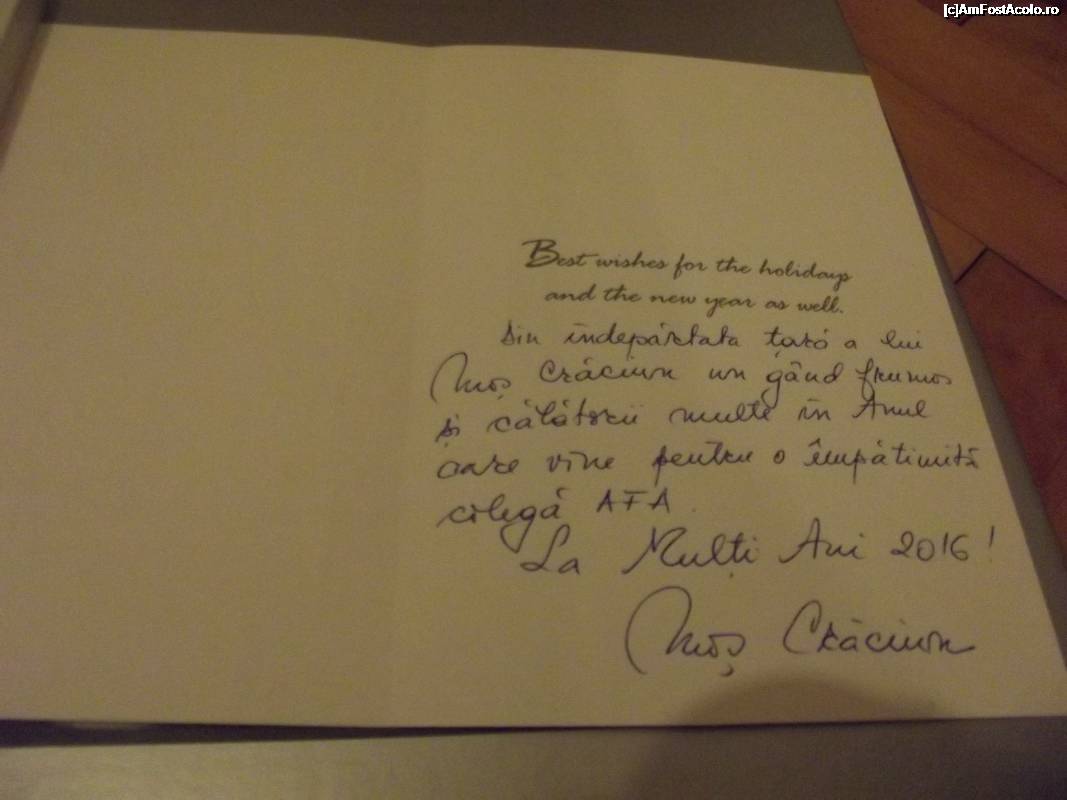 [c]AmFostAcolo.ro
Best wishes for the holidays
and the new year as well.
Din îndepărtata țară a lui
Moș Crăciun un gând frumos
și călătorii multe în Anul
care vine pentru o împătimită
colegă AFA.
La Mulți Ani 2016!
Moș Crăciun